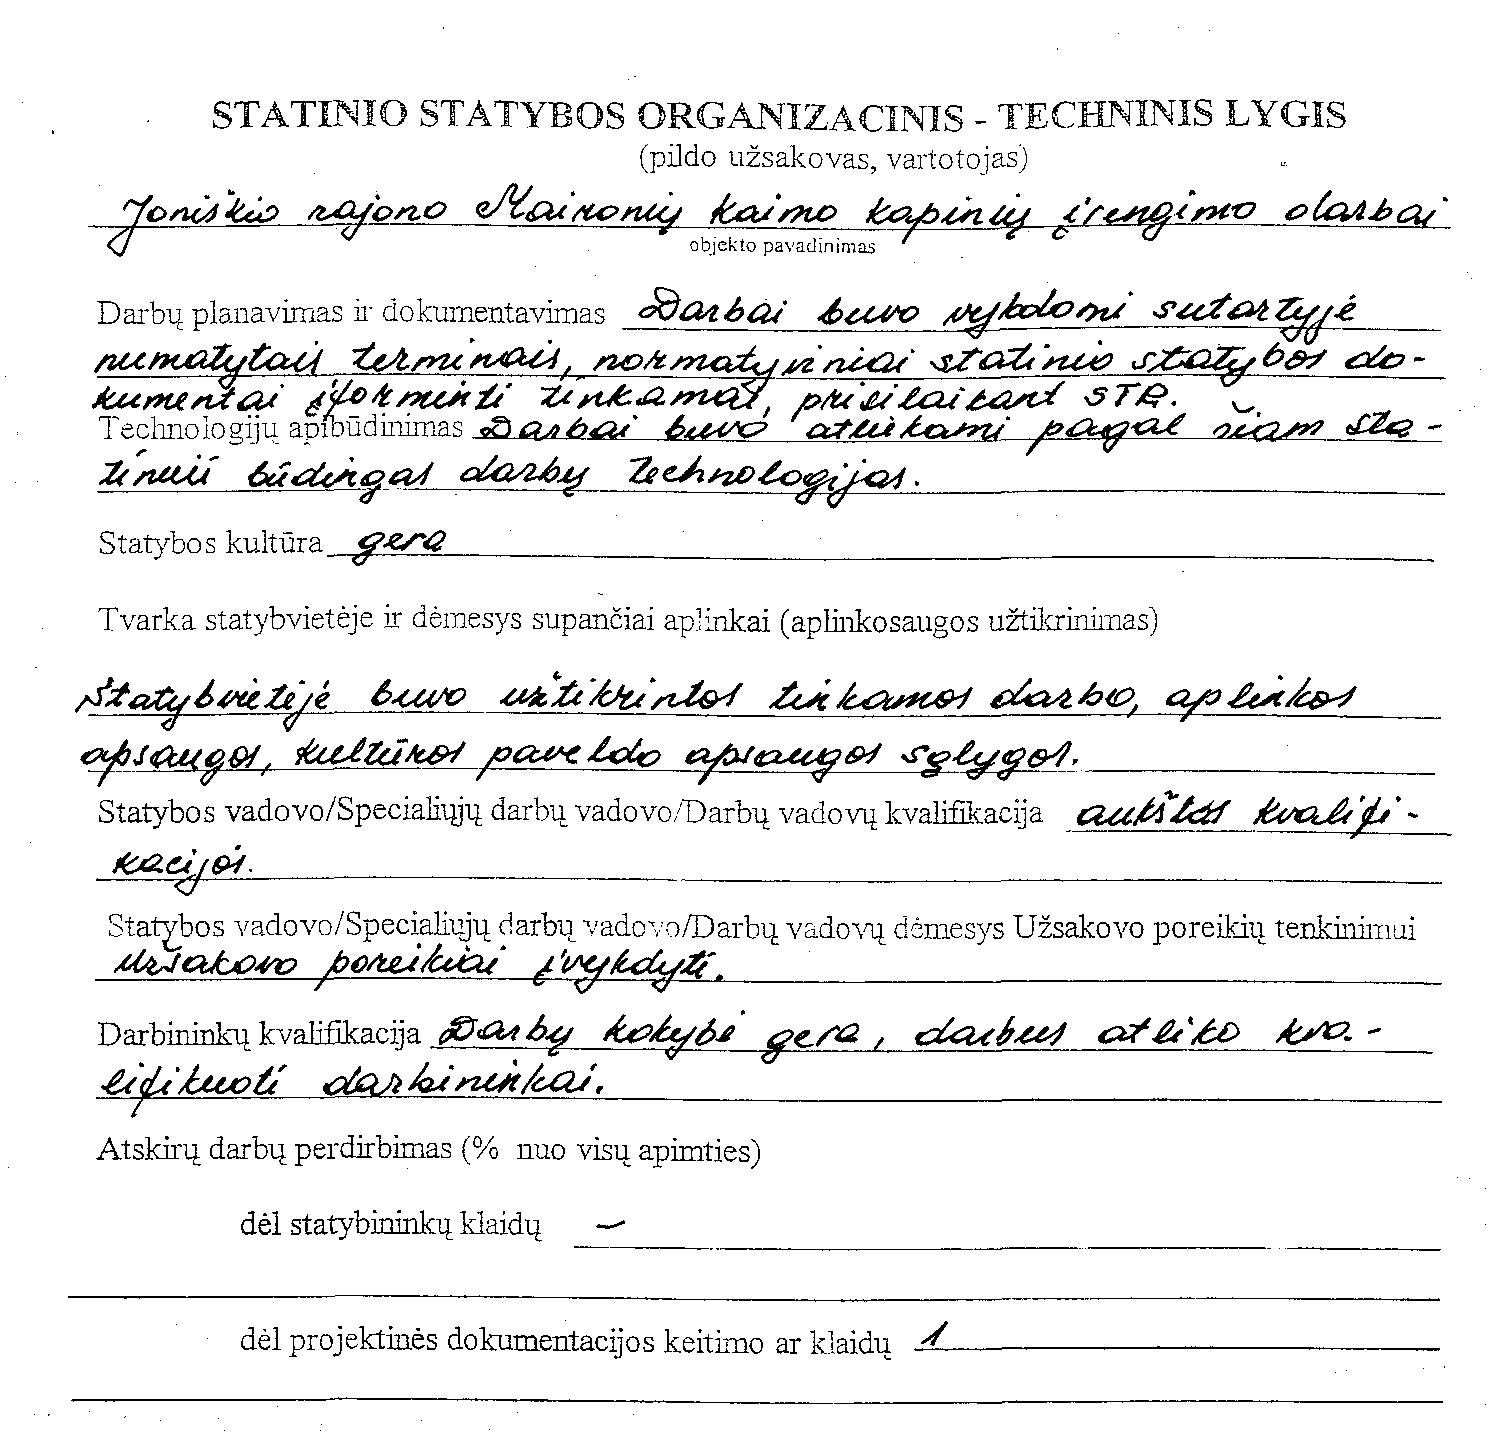 STATINIO STATYBOS ORGANIZACINIS - TECHNINIS LYGIS
(pildo užsakovas, vartotojas)
Joniškio rajono Maironių kaimo kapinių įrengimo darbai
objekto pavadinimas
Darbų planavimas ir dokumentavimas Darbai buvo vykdomi sutartyje
numatytais terminais, normatyviniai statinio statybos do-
kumentai įforminti tinkamai, prisilaikant STR.
Technologijų apibūdinimas Darbai buvo atliekami pagal šiam sta-
tiniui būdingas darbų technologijas.
Statybos kultūra gera
Tvarka statybvietėje ir dėmesys supančiai aplinkai (aplinkosaugos užtikrinimas)
Statybvietėje buvo užtikrintos tinkamos darbo, aplinkos
apsaugos, kultūros paveldo apsaugos sąlygos.
Statybos vadovo/Specialiųjų darbų vadovo/Darbų vadovų kvalifikacija aukštos kvalifi-
kacijos.
Statybos vadovo/Specialiųjų darbų vadovo/Darbų vadovų dėmesys Užsakovo poreikių tenkinimui
Užsakovo poreikiai įvykdyti.
Darbininkų kvalifikacija Darbų kokybė gera, darbus atliko kva-
lifikuoti darbininkai.
Atskirų darbų perdirbimas (% nuo visų apimties)
dėl statybininkų klaidų –
dėl projektinės dokumentacijos keitimo ar klaidų 1